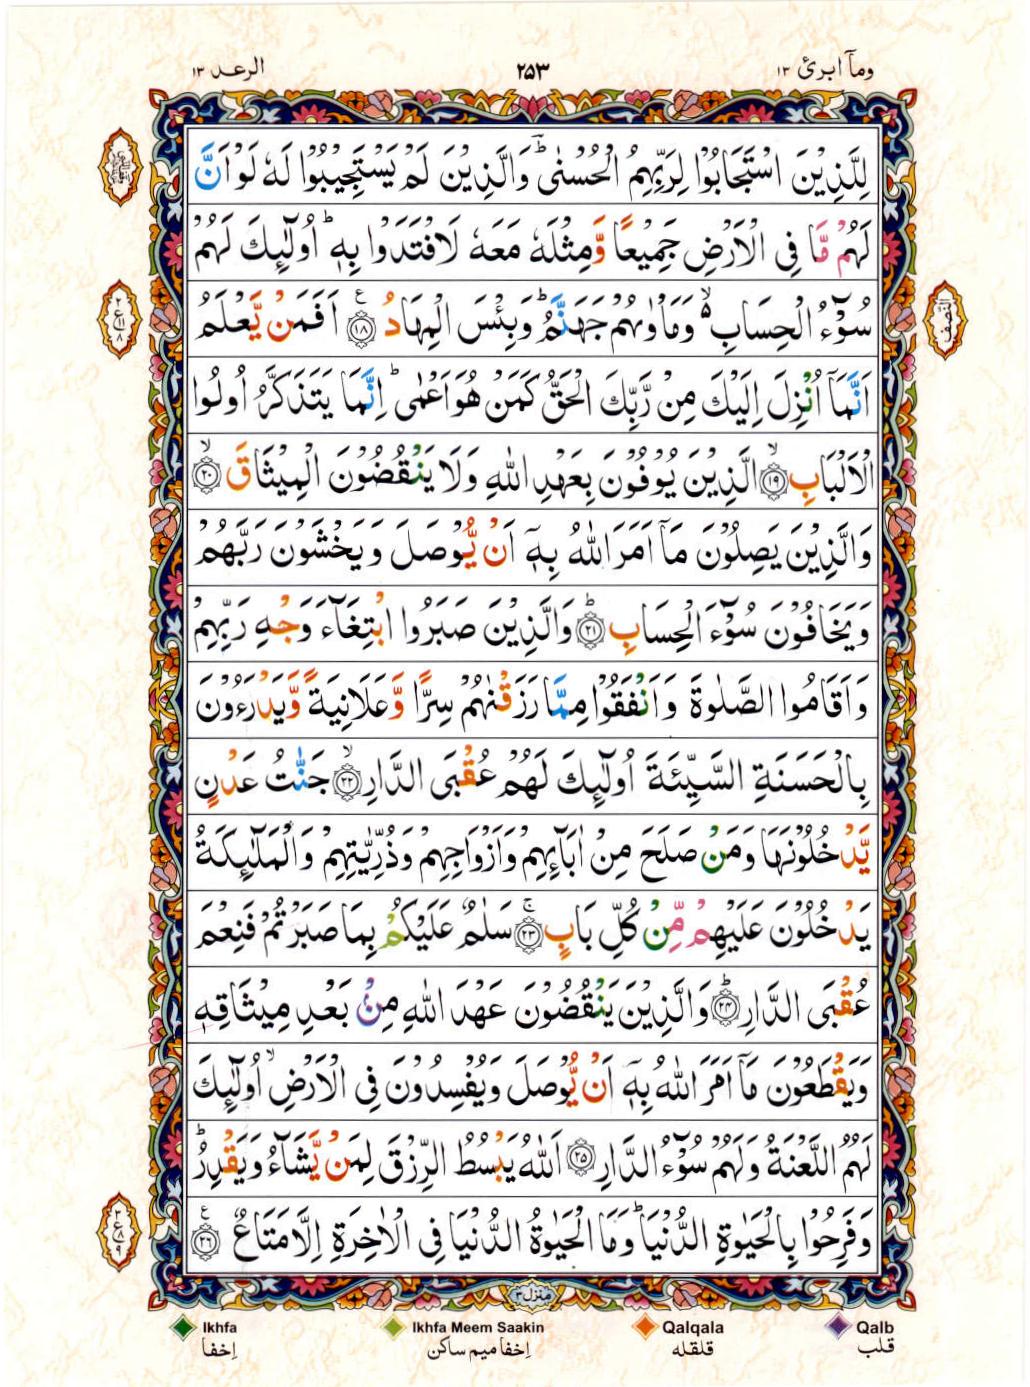 وماۤ ابرئ ۱۳
۲۵۳
الرعد ۱۳
لِلَّذِيْنَ اسْتَجَابُوْا لِرَبِّهِمُ الْحُسْنٰىؔ ؕ وَالَّذِيْنَ لَمْ يَسْتَجِيْبُوْا لَهٗ لَوْ اَنَّ
لَهُمْ مَّا فِى الْاَرْضِ جَمِيْعًا وَّمِثْلَهٗ مَعَهٗ لَافْتَدَوْا بِهٖ ؕ اُولٰٓئِكَ لَهُمْ
سُوْٓءُ الْحِسَابِ ۙ۬ وَمَاْوٰىهُمْ جَهَنَّمُ ؕ وَبِئْسَ الْمِهَادُ ۧ‏﴿۱۸﴾ اَفَمَنْ يَّعْلَمُ
النّصف
اَنَّمَاۤ اُنْزِلَ اِلَيْكَ مِنْ رَّبِّكَ الْحَقُّ كَمَنْ هُوَ اَعْمٰى ؕ اِنَّمَا يَتَذَكَّرُ اُولُوا
الْاَلْبَابِ ۙ‏﴿۱۹﴾ الَّذِيْنَ يُوْفُوْنَ بِعَهْدِ اللّٰهِ وَلَا يَنْقُضُوْنَ الْمِيْثَاقَ ۙ‏﴿۲۰﴾
وَالَّذِيْنَ يَصِلُوْنَ مَاۤ اَمَرَ اللّٰهُ بِهٖۤ اَنْ يُّوْصَلَ وَيَخْشَوْنَ رَبَّهُمْ
وَيَخَافُوْنَ سُوْٓءَ الْحِسَابِ ؕ‏﴿۲۱﴾ وَالَّذِيْنَ صَبَرُوا ابْتِغَآءَ وَجْهِ رَبِّهِمْ
وَاَقَامُوا الصَّلٰوةَ وَاَنْفَقُوْا مِمَّا رَزَقْنٰهُمْ سِرًّا وَّعَلَانِيَةً وَّيَدْرَءُوْنَ
بِالْحَسَنَةِ السَّيِّئَةَ اُولٰٓئِكَ لَهُمْ عُقْبَى الدَّارِ ۙ‏﴿۲۲﴾ جَنّٰتُ عَدْنٍ
يَّدْخُلُوْنَهَا وَمَنْ صَلَحَ مِنْ اٰبَآئِهِمْ وَاَزْوَاجِهِمْ وَذُرِّيّٰتِهِمْ وَالْمَلٰٓئِكَةُ
يَدْخُلُوْنَ عَلَيْهِمْ مِّنْ كُلِّ بَابٍ ۚ‏﴿۲۳﴾ سَلٰمٌ عَلَيْكُمْ بِمَا صَبَرْتُمْ فَنِعْمَ
عُقْبَى الدَّارِ ؕ‏﴿۲۴﴾ وَالَّذِيْنَ يَنْقُضُوْنَ عَهْدَ اللّٰهِ مِنْۢ بَعْدِ مِيْثَاقِهٖ
وَيَقْطَعُوْنَ مَاۤ اَمَرَ اللّٰهُ بِهٖۤ اَنْ يُّوْصَلَ وَيُفْسِدُوْنَ فِى الْاَرْضِ ۙ اُولٰٓئِكَ
لَهُمُ اللَّعْنَةُ وَلَهُمْ سُوْٓءُ الدَّارِ ﴿۲۵﴾ اَللّٰهُ يَبْسُطُ الرِّزْقَ لِمَنْ يَّشَآءُ وَيَقْدِرُ ؕ
وَفَرِحُوْا بِالْحَيٰوةِ الدُّنْيَا ؕ وَمَا الْحَيٰوةُ الدُّنْيَا فِى الْاٰخِرَةِ اِلَّا مَتَاعٌ ۧ‏﴿۲۶﴾
منزل ۳
Ikhfa
Ikhfa Meem Saakin
Qalqala
Qalb
اِخفا
اِخفا میم ساکن
قلقله
قلب